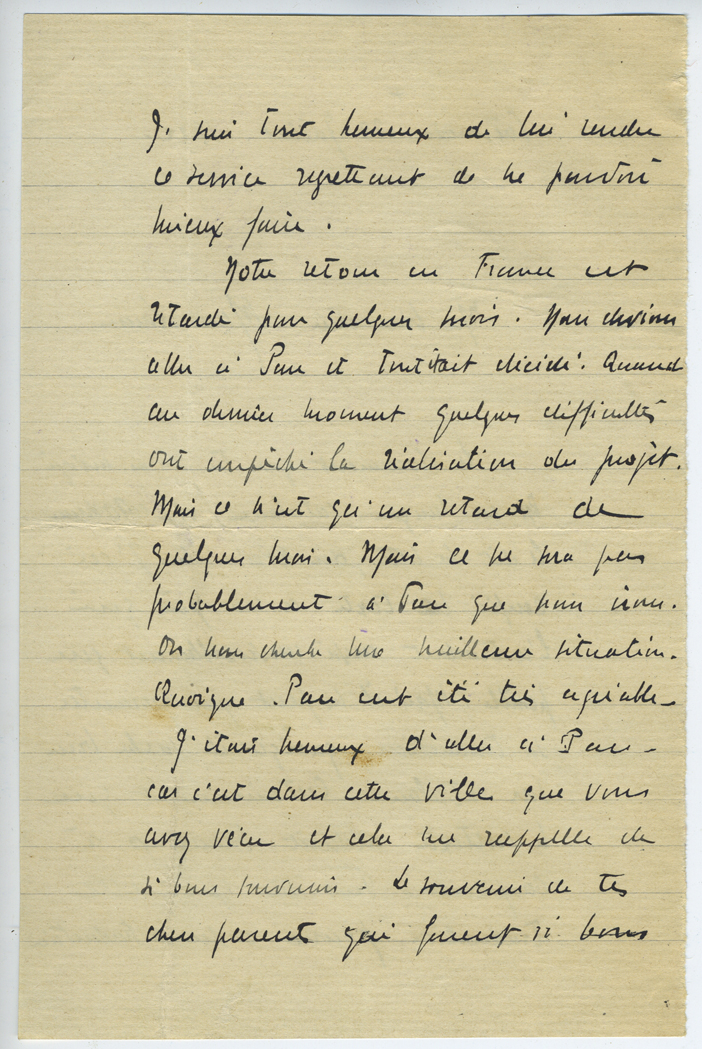 Je suis tout heureux de lui rendre
ce service regrettant de ne pouvoir
mieux faire.
Notre retour en France est
retardé pour quelques mois. Nous devions
aller à Pau et tout était décidé. Quand
au dernier moment quelques difficultés
ont empêché la réalisation du projet.
Mais ce n'est qu'un retard de
quelques mois. Mais ce ne sera pas
probablement à Pau que nous irons.
On nous cherche une meilleure situation.
Quoique Pau eut été très agréable
J'étais heureux d'aller à Pau
car c'est dans cette ville que vous
avez vécu et cela me rappelle de
si bons souvenirs. Le souvenir de tes
chers parents qui furent si bons